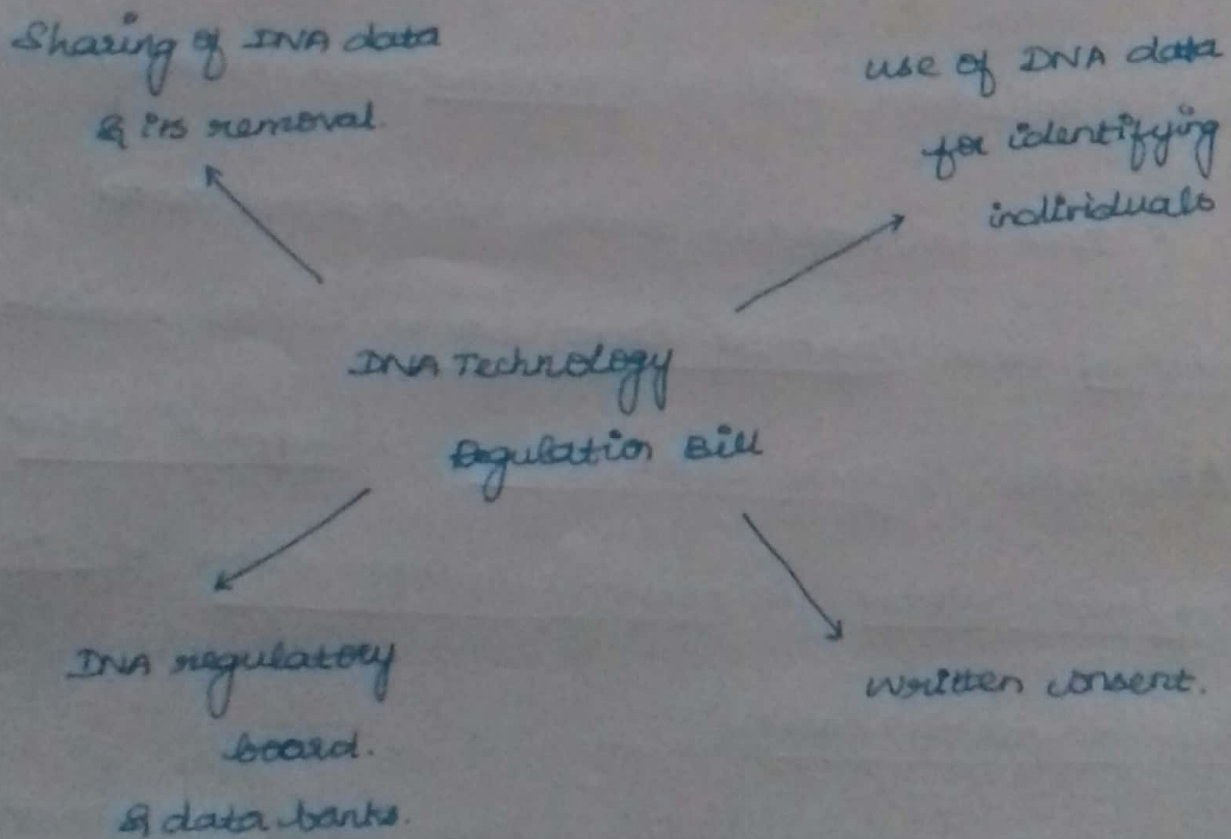 Sharing of DNA data
& its removal.
use of DNA data
for identifying
individuals
DNA Technology
Regulation Bill
DNA regulatory
board.
& data banks.
written consent.